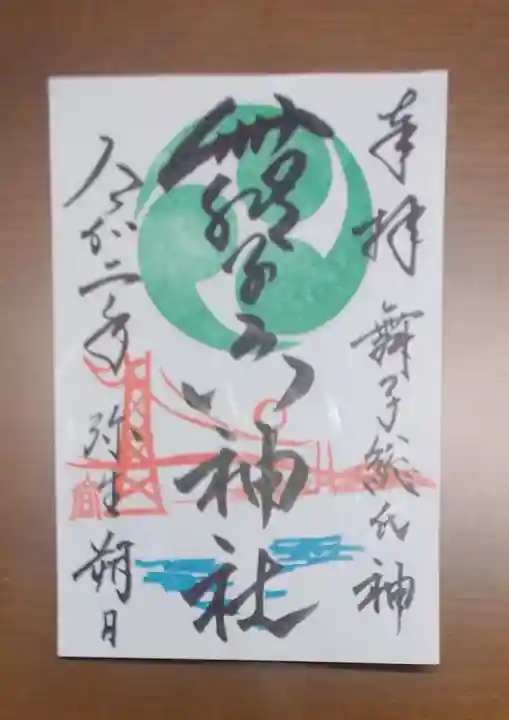 奉拝
舞子総氏神
舞子六神社
令和二年 弥生 朔日